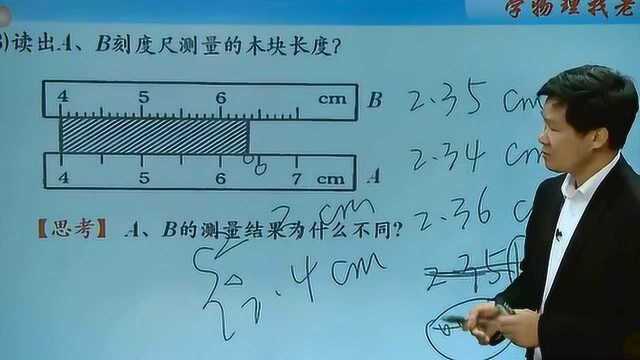 学物理找老
3)读出A、B刻度尺测量的木块长度?
4 5 6 cm B
4 5 6 7 cm A
【思考】 A、B的测量结果为什么不同?
2.35 cm
2.34 c
2.36 c
2 cm
2.4 cm